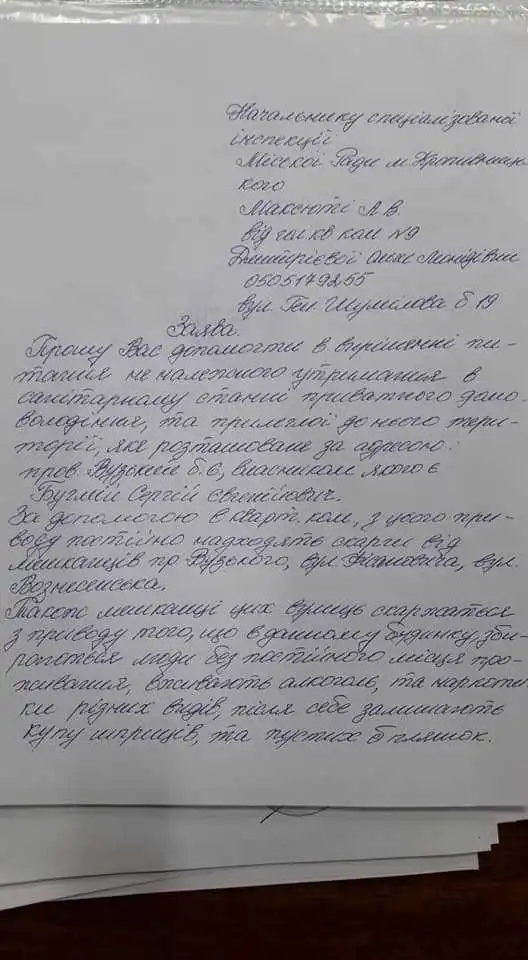 Начальнику спеціалізованої
інспекції
Міської Ради м. Кропивниць-
кого
Максюті А.В.
від гол кв ком №9
Дмитрієвої Леонідівни
0505179255
вул. Ген. Шумілова б 19
Заява.
Прошу Вас допомогти в вирішенні пи-
тання не належного утримання в
санітарному стані приватного домо-
володіння, та прилеглої до нього тери-
торії, яке розташоване за адресою:
пров. Вузький б. 6, власником якого є
Сергій Євгенійович.
За допомогою в кварт. ком, з цього при-
воду постійно надходять скарги від
мешканців пр. Вузького, вул. вул.
Вознесенська.
Також мешканці цих вулиць скаржаться
з приводу того, що в данному будинку, зби-
раються люди без постійного місця про-
живання, вживають алкоголь, та наркоти-
ки різних видів, після себе залишають
купу шприців, та пустих пляшок.